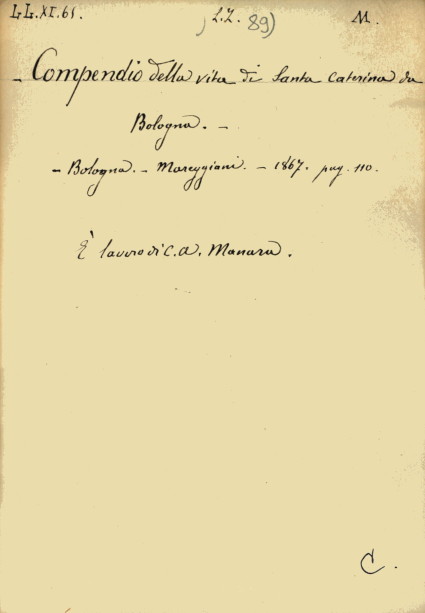 LL.XI.61. L.Z. 89) M.
- Compendio della vita di Santa Caterina da
Bologna. -
- Bologna. - Mareggiani. - 1867. pag. 110.
È lavoro di C. A. Manara.
C.